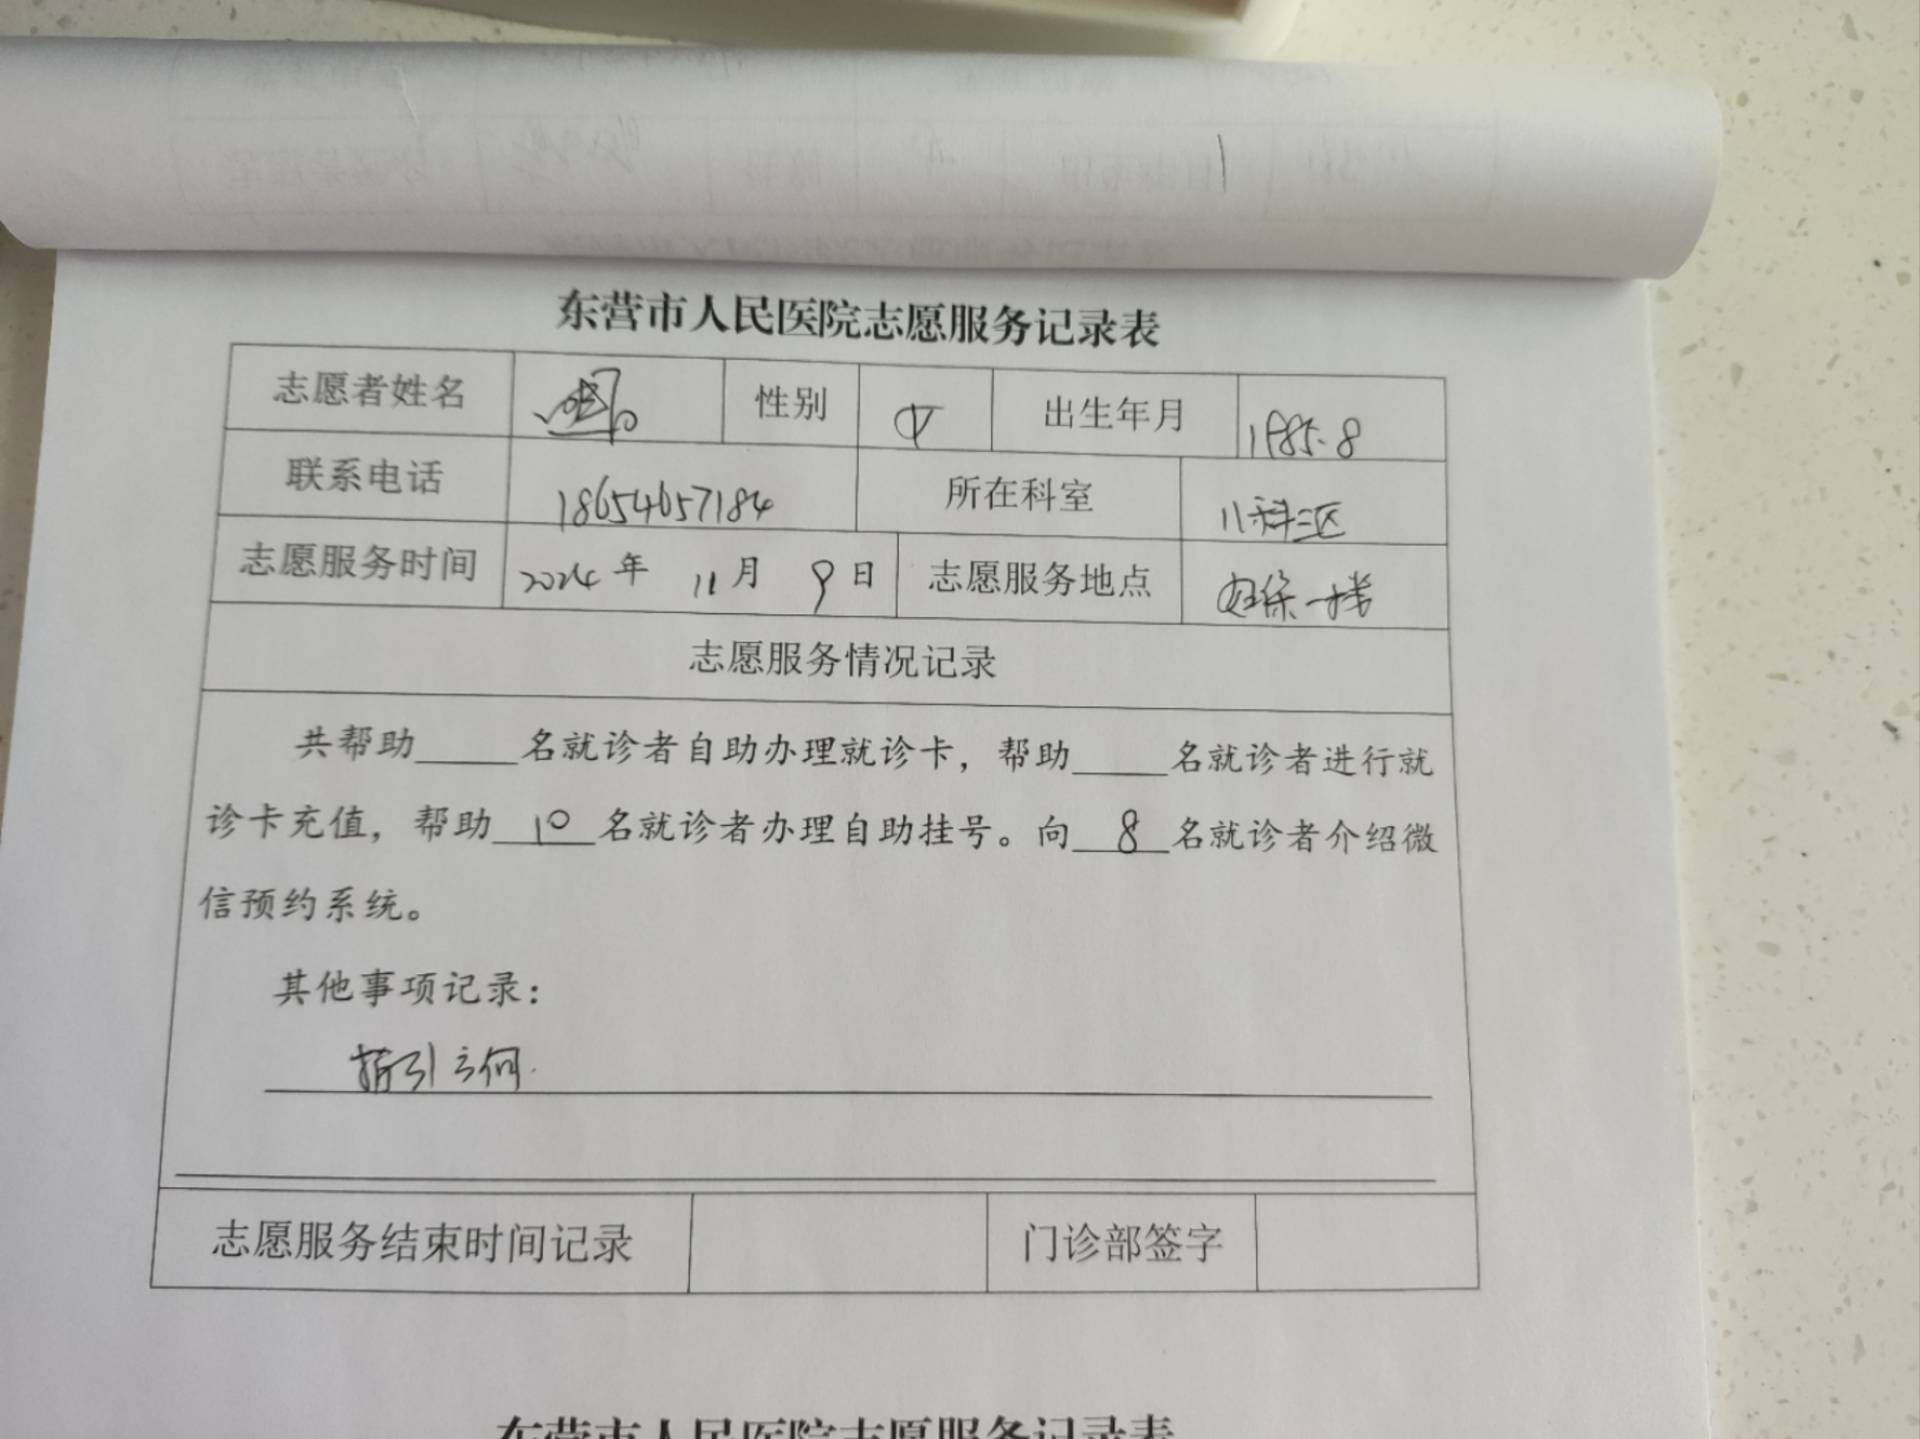 东营市人民医院志愿服务记录表
志愿者姓名 性别 女 出生年月 1985.8
联系电话 18654657184 所在科室 儿科三区
志愿服务时间 2024年 11月 9日 志愿服务地点 妇保一楼
志愿服务情况记录
共帮助_____名就诊者自助办理就诊卡，帮助_____名就诊者进行就
诊卡充值，帮助 10 名就诊者办理自助挂号。向 8 名就诊者介绍微
信预约系统。
其他事项记录：
指引方向.
志愿服务结束时间记录 门诊部签字
东营市人民医院志愿服务记录表